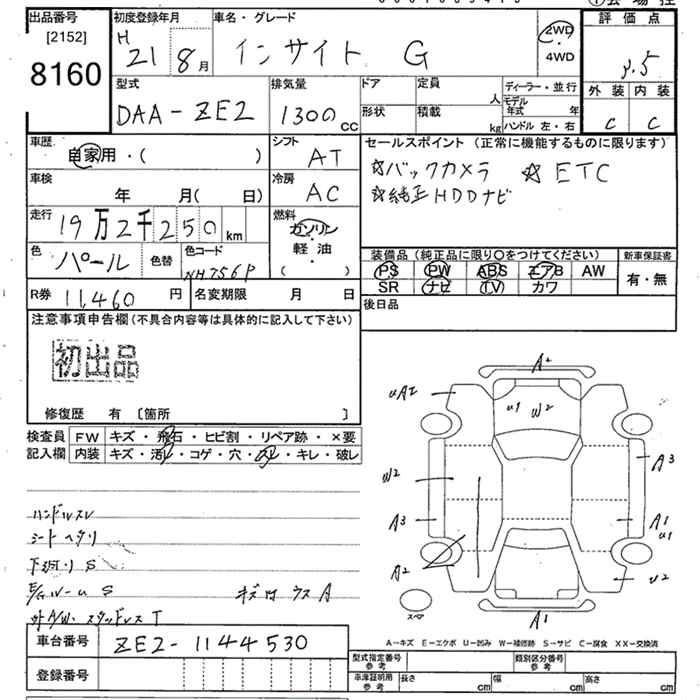 出品番号
[2152]
8160
初度登録年月
H
21 8月
車名・グレード
インサイト G
2WD
・
4WD
評価点
3.5
外装 内装
C C
型式
DAA-ZE2
排気量
1300cc
ドア
形状
定員 人
積載 kg
ディーラー・並行
モデル年式 年
ハンドル 左・右
車歴
自家用・( )
シフト
AT
車検
年 月( 日)
冷房
AC
走行
19万2千250km
燃料
ガソリン
・
軽油
( )
色
パール
色替
色コード
NH756P
セールスポイント(正常に機能するものに限ります)
☆バックカメラ ☆ETC
☆純正HDDナビ
装備品(純正品に限り○をつけてください)
PS PW ABS エアB AW
SR ナビ TV カワ
新車保証書
有・無
R券 11,460円
名変期限 月 日
後日品
注意事項申告欄(不具合内容等は具体的に記入して下さい)
初出品
修復歴 有 [箇所 ]
検査員
記入欄
FW キズ・飛石・ヒビ割・リペア跡・×要
内装 キズ・汚レ・コゲ・穴・スレ・キレ・破レ
ハンドルスレ
シートヘタリ
下廻り S
S
キズ凹 ウス A
外A/W・スタッドレス T
A2
uA2
u1
W2
W2
A3
A3
A1
u1
A2
u2
A1
スペア
A=キズ E=エクボ U=凹み W=補修跡 S=サビ C=腐食 XX=交換済
車台番号
ZE2-1144530
登録番号
型式指定番号
参考
類別区分番号
参考
車庫証明用
参考
長さ cm
幅 cm
高さ cm